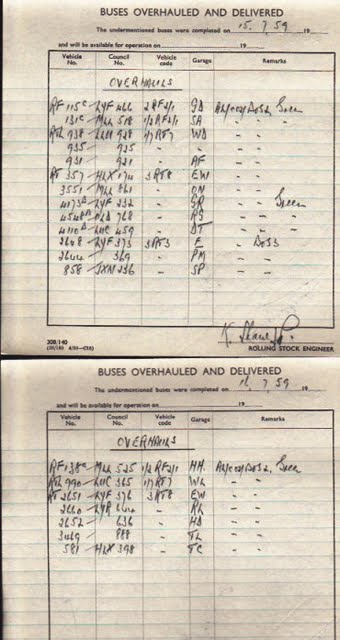 BUSES OVERHAULED AND DELIVERED
The undermentioned buses were completed on 15. 7. 59 19
and will be available for operation on 19
Vehicle No. Council No. Vehicle code Garage Remarks
OVERHAULS
RF 115c LYF 466 2RF2/1 GD Green
131c MLL 518 1/2RF2/1 SA " "
RTL 938 LUC 928 1/7RT7 WD " "
935 925 " " " "
931 921 " AF " "
RT 357 HLX 174 3RT8 EW " "
3551 MLL 861 " ON " "
4173 LYF 232 " GR " Green
4548 OLD 768 " RG " " "
4110 LUC 459 " DT " " "
2648 LYF 373 3RT3 E " DOS3
2644 369 " PM " "
858 JXN 236 " SP " "
308/140
ROLLING STOCK ENGINEER
BUSES OVERHAULED AND DELIVERED
The undermentioned buses were completed on 16. 7. 59 19
and will be available for operation on 19
Vehicle No. Council No. Vehicle code Garage Remarks
OVERHAULS
RF 138c MLL 525 1/2RF2/1 HH. Green
RTL 990 LUC 365 1/7RT7 WL " "
RT 2651 LYF 376 3RT8 EW " "
2660 LYR 644 " RL " "
2652 636 " HD " "
3469 888 " TL " "
581 HLX 398 " TC " "